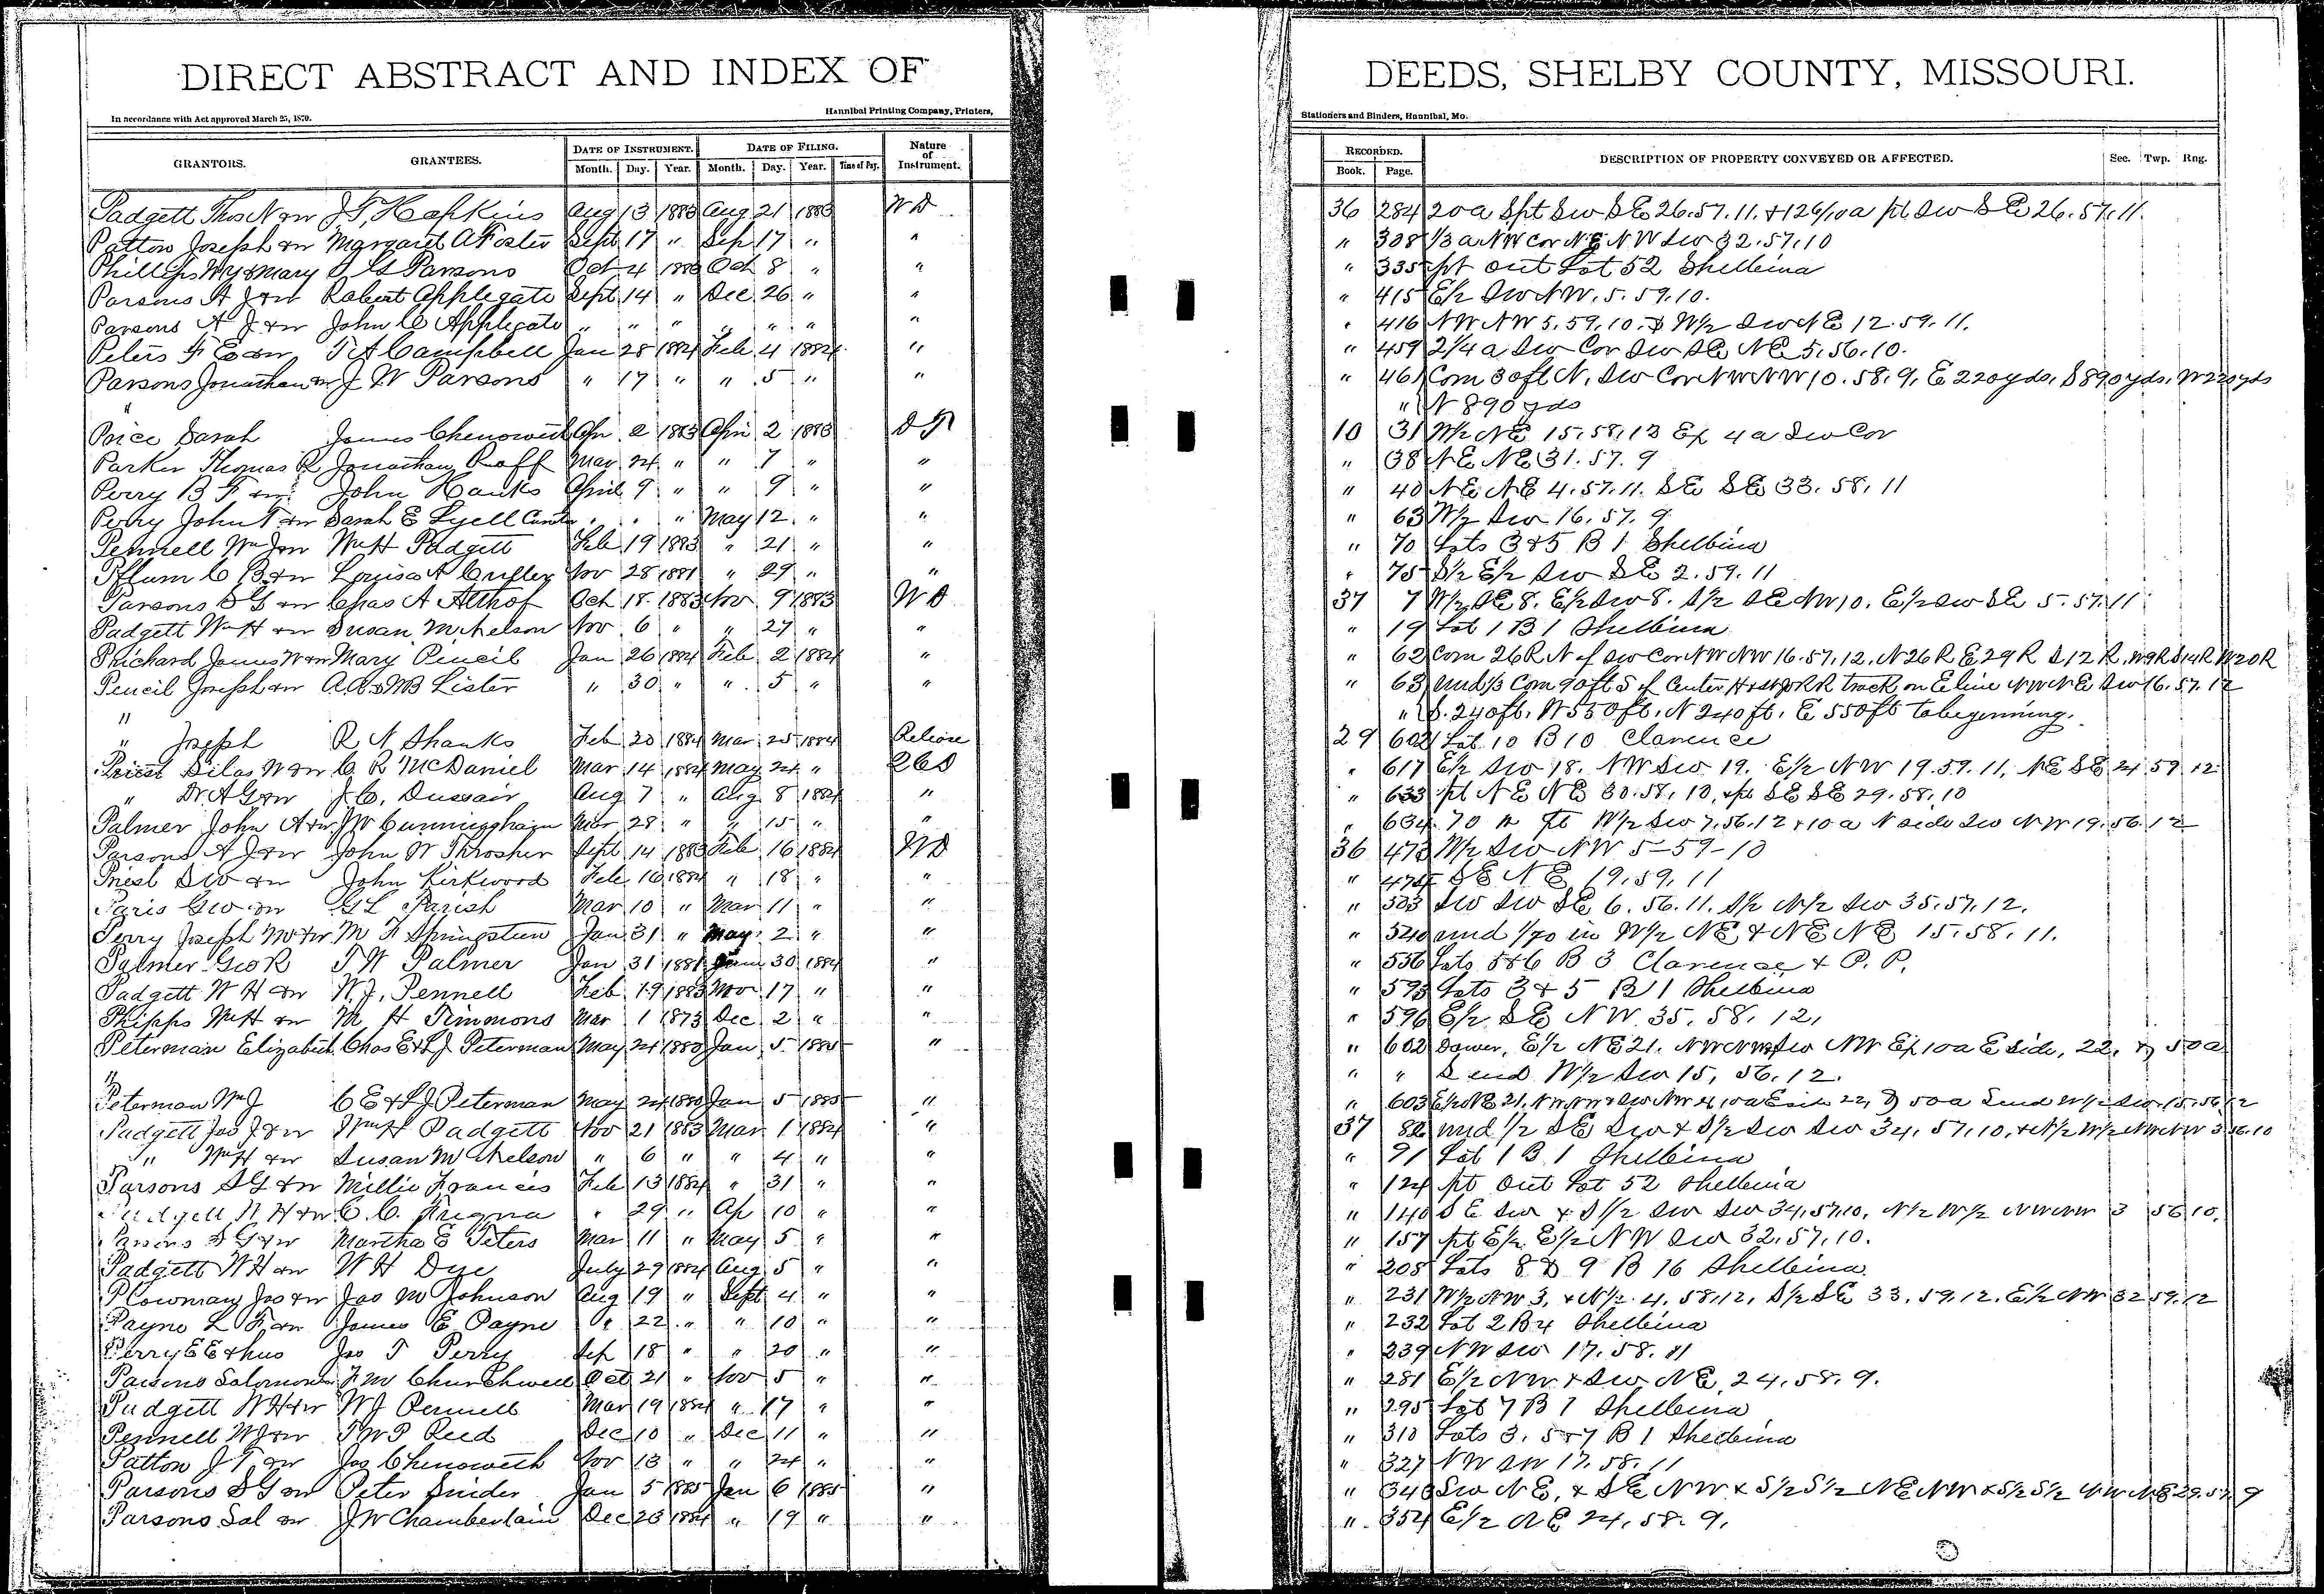 DIRECT ABSTRACT AND INDEX OF DEEDS, SHELBY COUNTY, MISSOURI.
In accordance with Act approved March 25, 1870. Hannibal Printing Company, Printers, Stationers and Binders, Hannibal, Mo.
GRANTORS. GRANTEES. DATE OF INSTRUMENT. DATE OF FILING. Nature of Instrument. RECORDED. DESCRIPTION OF PROPERTY CONVEYED OR AFFECTED. Sec. Twp. Rng.
Month. Day. Year. Month. Day. Year. Time of Day. Book. Page.
Padgett Thos N &w J.T. Hopkins Aug 13 1883 Aug 21 1883 WD 36 284 20a Spt Sw SE 26.57.11. & 126/10a pt Sw SE 26.57.11.
Patton Joseph &w Margaret A Foster Sept 17 " Sep 17 " " " 308 1/3 a NW Cor NE NW Sw 32.57.10
Phillips Wy & Mary S G Parsons Oct 4 1883 Oct 8 " " " 335 pt out Lot 52 Shelbina
Parsons A J &w Robert Applegate Sept 14 " Dec 26 " " " 415 E/2 Sw NW. 5.59.10.
Parsons A J &w John C Applegate " " " " " " " " 416 NW NW 5.59.10. & W/2 Sw NE 12.59.11.
Peters F E &w T A Campbell Jan 28 1884 Feb 4 1884 " " 459 2 1/4 a Sw Cor Sw SE NE 5.56.10.
Parsons Jonathan &w J W Parsons " 17 " " 5 " " " 461 Com 30ft N. Sw Cor NW NW 10.58.9, E 220yds, S 890yds, W 220yds
" " N 890 yds
Price Sarah James Chenoweth Apr 2 1883 Apri 2 1883 DT 10 31 W/2 NE 15.58.13 Ex 4a Sw Cor
Parker Thomas R Jonathan Roff Mar 24 " " 7 " " " 38 NE NE 31.57.9
Perry B F &w John Hanks April 9 " " 9 " " " 40 NE NE 4.57.11. SE SE 33.58.11
Perry John T &w Sarah E Lyell " " " May 12 " " " 63 W/2 Sw 16.57.9
Pennell Wm J &w Wm H Padgett Feb 19 1883 " 21 " " " 70 Lots 3 & 5 B 1 Shelbina
Pflum C B &w Louisa A Nov 28 1881 " 29 " " " 75 S/2 E/2 Sw SE 2.59.11
Parsons S G &w Chas A Althof Oct 18 1883 Nov 9 1883 WD 37 7 W/2 SE 8. E/2 Sw 8. S/2 SE NW 10. E/2 Sw SE 5.57.11
Padgett Wm H &w Susan M Nelson Nov 6 " " 27 " " " 19 Lot 1 B 1 Shelbina
Prichard James W &w Mary Pencil Jan 26 1884 Feb 2 1884 " " 62 Com 26R N of Sw Cor NW NW 16.57.12. N 26R E 29R S 12R. W 9R S 14R W 20R
Pencil Joseph &w A.B & MB Lister " 30 " " 5 " " " 63 und 1/3 Com 90ft S of Center H & St J RR track on E line NW NE Sw 16.57.12
" " S. 240ft. W 550ft. N 240ft. E 550ft to beginning.
" Joseph R N Shanks Feb 20 1884 Mar 25 1884 Release 29 602 Lot 10 B 10 Clarence
Priest Silas W &w C R McDaniel Mar 14 1884 May 24 " QCD " 617 E/2 Sw 18. NW Sw 19. E/2 NW 19.59.11, NE SE 24 59 12
" Dr A G &w J C. Dussair Aug 7 " Aug 8 1884 " " 633 pt NE NE 30.58.10, & pt SE SE 29.58.10
Palmer John A &w J W Cunningham Mar 28 " " 15 " " " 634 70 a pt W/2 Sw 7.56.12 & 10a N side Sw NW 19.56.12
Parsons A J &w John W Throsher Sept 14 1883 Feb 16 1884 WD 36 473 W/2 Sw NW 5-59-10
Priest S W &w John Kirkwood Feb 16 1884 " 18 " " " 474 SE NE 19.59.11
Paris Geo &w G L Parish Mar 10 " Mar 11 " " " 503 Sw Sw SE 6.56.11. S/2 N/2 Sw 35.57.12.
Perry Joseph M &w M F Springsteen Jan 31 " May 2 " " " 540 und 1/70 in W/2 NE & NE NE 15.58.11.
Palmer Geo R T W Palmer Jan 31 1881 June 30 1884 " " 556 Lots 5 & 6 B 3 Clarence & P.P.
Padgett W H &w W.J. Pennell Feb 19 1883 Nov 17 " " " 593 Lots 3 & 5 B 1 Shelbina
Phipps Wm H &w M H Timmons Mar 1 1873 Dec 2 " " " 596 E/2 SE NW 35.58.12,
Peterman Elizabeth Chas E & L J Peterman May 24 1880 Jan 5 1885 " " 602 Dower, E/2 NE 21. NW NW & Sw NW Ex 10a E side, 22. & 50a
" " " S end W/2 Sw 15, 56.12.
Peterman Wm J C E & L J Peterman May 24 1880 Jan 5 1885 " " 603 E/2 NE 21, NW NW & Sw NW Ex 10a E side 22, & 50a S end W/2 Sw. 15.56.12
Padgett Jas J &w Wm H Padgett Nov 21 1883 Mar 1 1884 " 37 82 und 1/2 SE Sw & S/2 Sw Sw 34.57.10, & N/2 W/2 NW NW 3 56.10
" Wm H &w Susan M Nelson " 6 " " 4 " " " 91 Lot 1 B 1 Shelbina
Parsons S G &w Millie Francis Feb 13 1884 " 31 " " " 124 pt Out Lot 52 Shelbina
Padgett W H &w C. C. Fregna " 29 " Ap 10 " " " 140 SE Sw & S 1/2 Sw Sw 34.57.10, N/2 W/2 NW NW 3 56 10.
Parsons S G &w Martha E Peters Mar 11 " May 5 " " " 157 pt E/2 E/2 NW Sw 32.57.10.
Padgett W H &w W H Dye July 29 1884 Aug 5 " " " 208 Lots 8 & 9 B 16 Shelbina
Plowman Jas &w Jas M Johnson Aug 19 " Sept 4 " " " 231 W/2 NW 3, & N/2. 4, 58.12, S/2 SE 33.59.12. E/2 NW 32 59.12
Payne L F &w James E Payne " 22 " " 10 " " " 232 Lot 2 B 4 Shelbina
Perry E E & hus Jas T Perry Sep 18 " " 20 " " " 239 NW Sw 17.58.11
Parsons Salomon &w F M Churchwell Oct 21 " Nov 5 " " " 281 E/2 NW & Sw NE 24.58.9.
Padgett W H &w W J Pennell Mar 19 1884 " 17 " " " 295 Lot 7 B 1 Shelbina
Pennell W J &w T W P Reed Dec 10 " Dec 11 " " " 310 Lots 3. 5 & 7 B 1 Shelbina
Patton J T &w Jas Chenoweth Nov 13 " " 24 " " " 327 NW Sw 17.58.11
Parsons S G &w Peter Snider Jan 5 1885 Jan 6 1885 " " 340 Sw NE, & SE NW & S/2 S/2 NE NW & S/2 S/2 NW NE 29.57.9
Parsons Sal &w J W Chamberlain Dec 23 1884 " 19 " " " 354 E/2 NE 24.58.9.